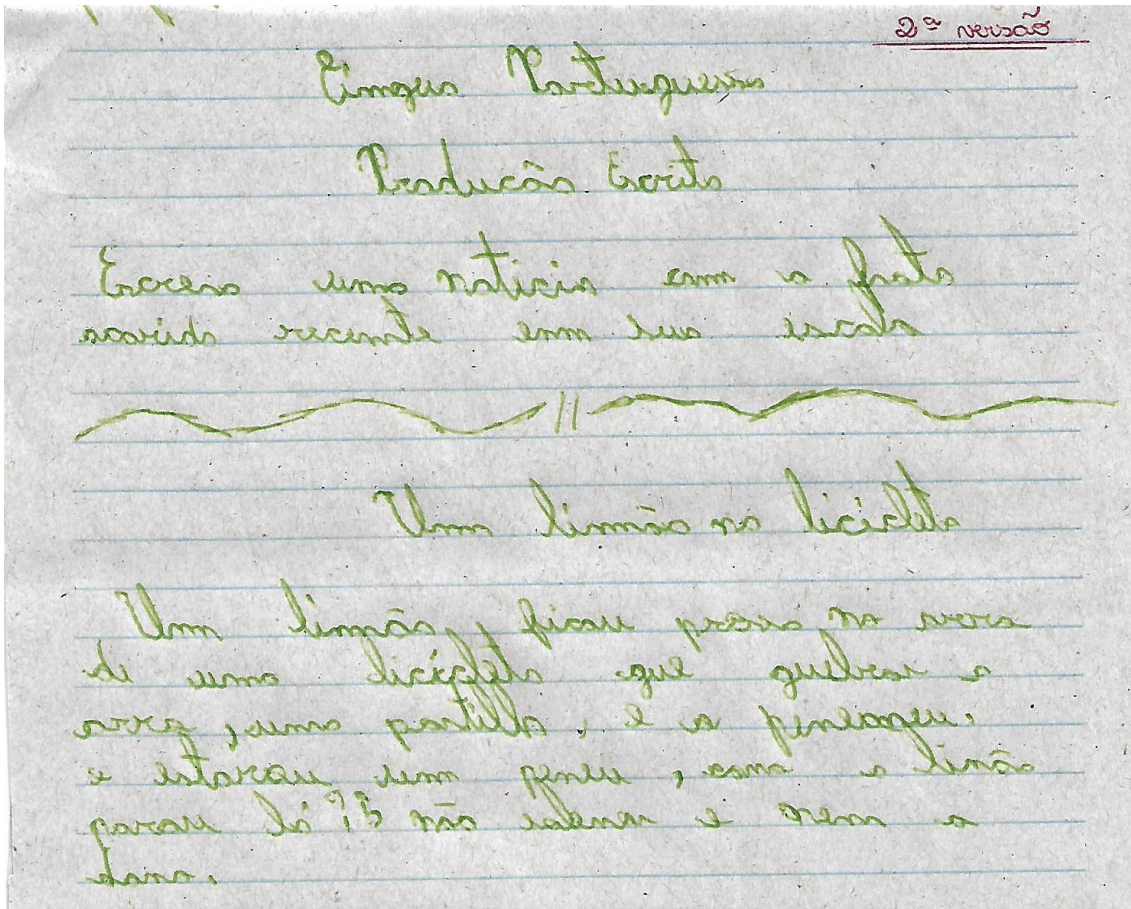 2ª versão
Língua Portuguesa
Produção Escrita
Escreva uma noticia com o fato
ocorido recente emm sua escola
Um limão na bicicleta
Um limão, ficou preso no aroo
de uma bicicleta que quebrou o
aroo, uma pastilha, e a
e estorou um pneu, como o limão
parou lá?? não sabemos e nem o
dono.